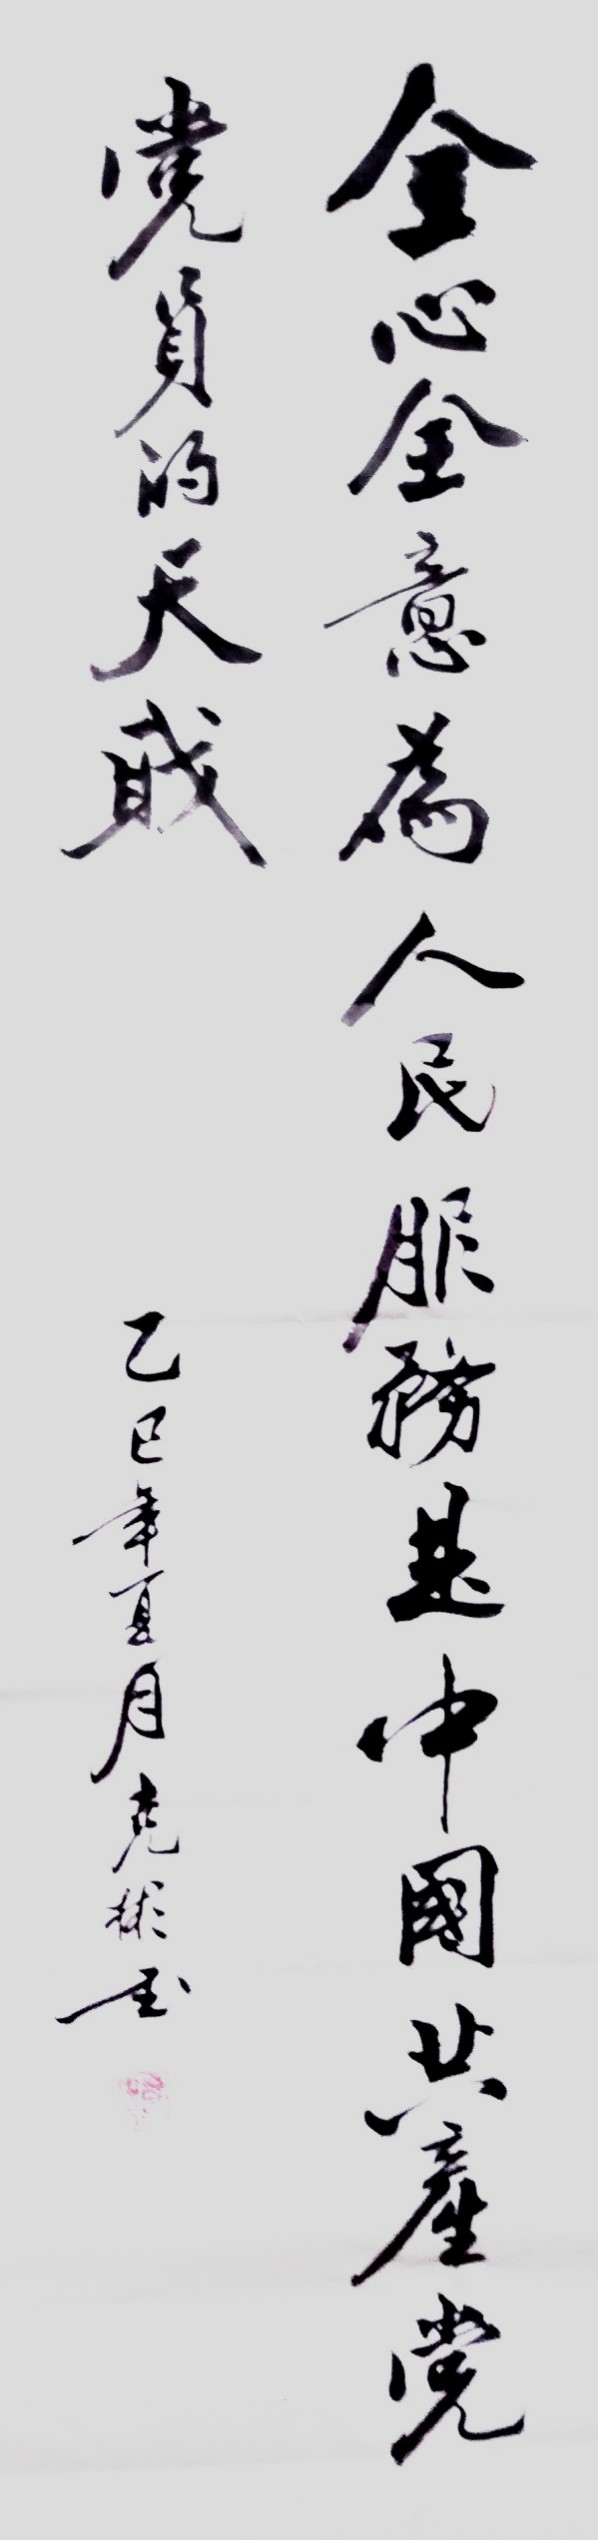 全心全意為人民服務是中國共產党
党員的天職
乙巳年夏月克彬书